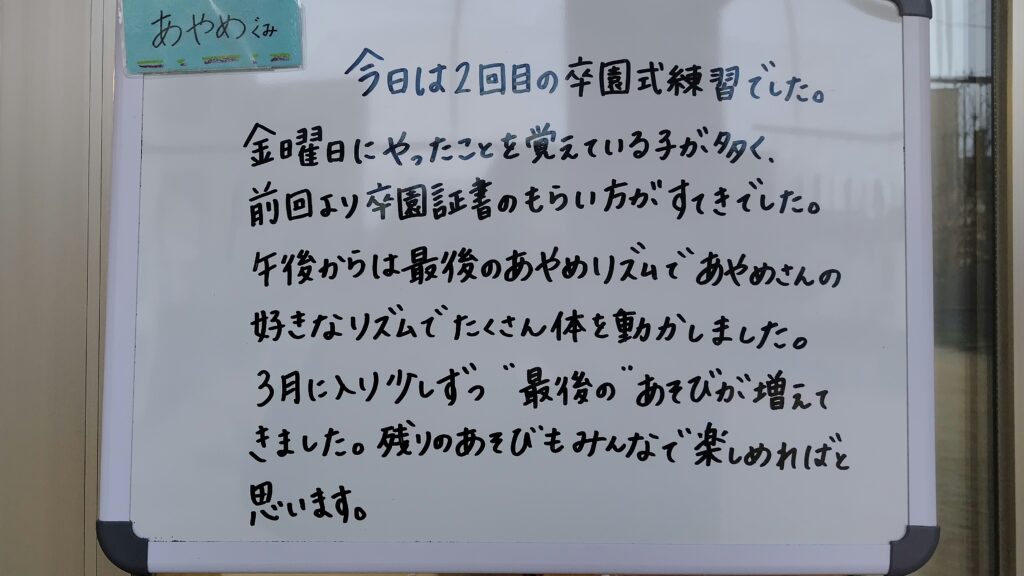 あやめぐみ
今日は2回目の卒園式練習でした。
金曜日にやったことを覚えている子が多く、
前回より卒園証書のもらい方がすてきでした。
午後からは最後のあやめリズムであやめさんの
好きなリズムでたくさん体を動かしました。
3月に入り少しずつ"最後の"あそびが増えて
きました。残りのあそびもみんなで楽しめればと
思います。